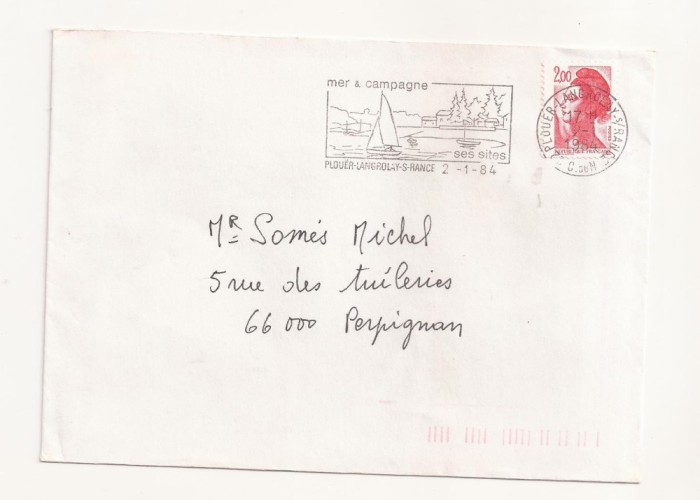 mer & campagne
2,00
ses sites
PLOUËR-LANGROLAY-S-RANCE 2 -1-84
PLOUËR LANGROLAY-S-RANCE
17 H
1984
C.du N
Mr Somés Michel
5 rue des tuileries
66 000 Perpignan